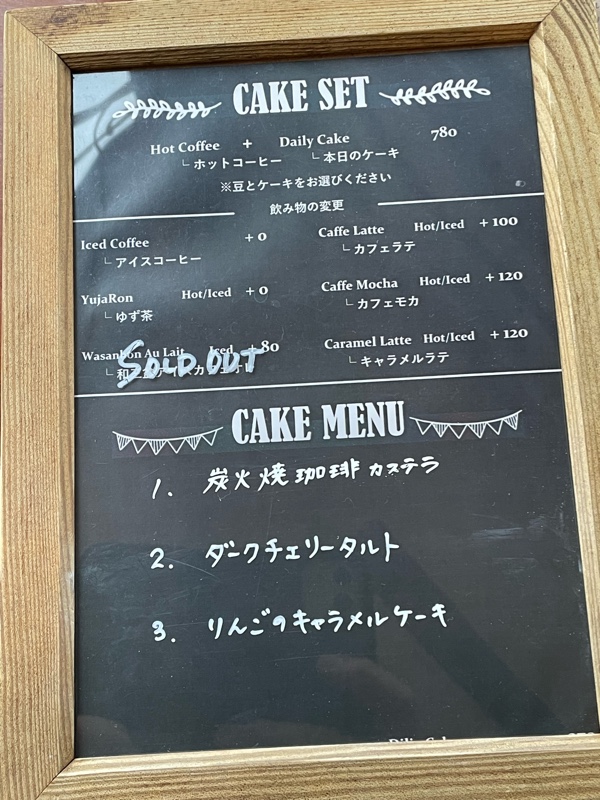 CAKE SET
Hot Coffee + Daily Cake 780
└ ホットコーヒー └ 本日のケーキ
※豆とケーキをお選びください
飲み物の変更
Iced Coffee +0
└ アイスコーヒー
YujaRon Hot/Iced +0
└ ゆず茶
Wasanbon Au Lait Iced +80
SOLD OUT
Caffe Latte Hot/Iced +100
└ カフェラテ
Caffe Mocha Hot/Iced +120
└ カフェモカ
Caramel Latte Hot/Iced +120
└ キャラメルラテ
CAKE MENU
1. 炭火焼珈琲カステラ
2. ダークチェリータルト
3. りんごのキャラメルケーキ